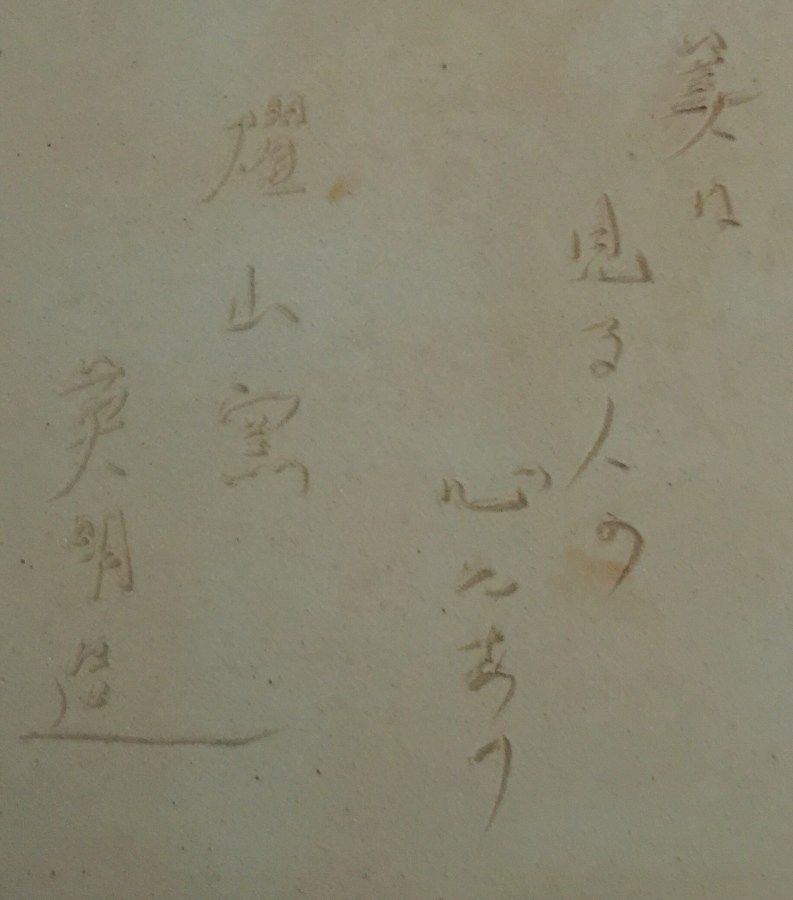 美は
見る人の
心にあり
耀山窯
英明造